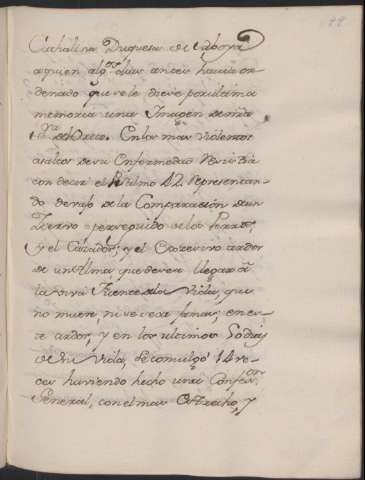 Cathalina Duquesa de Saboya
a quien algs. dias antes havia or
denado que se le diese por ultima
memoria una Imagen de nra
Sra. de Loreto. En los mas violentos
asaltos de su Enfermedad
con decir el Psalmo 42. representan
do debajo de la Comparacion de un
Zierbo perseguido de los Perros,
y el Cazador, y el extremo ardor
de un Alma, que desea llegar â
la viva fuente de la Vida, que
no muere, ni se seca jamas, en es
te ardor, y en los ultimos 50 dias
de su Vida, Se comulgo 14 ve
ces haviendo hecho una Confon.
General, con el mas extrecho, y